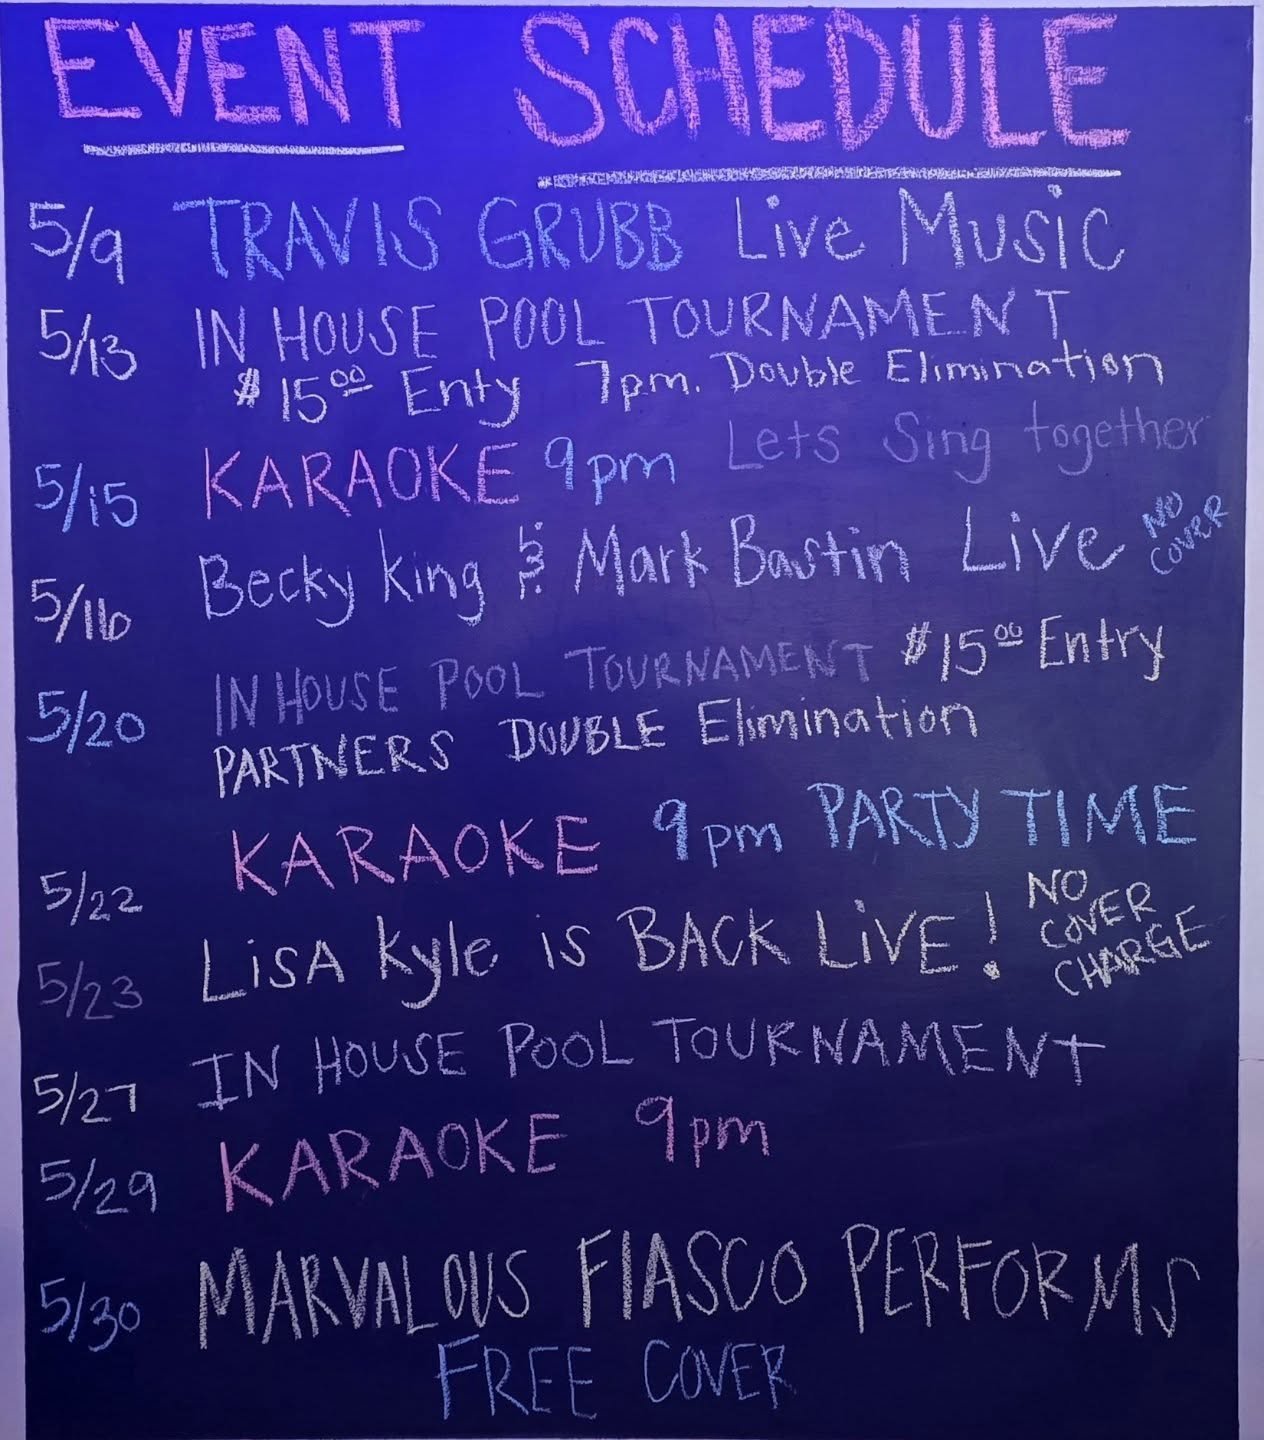 EVENT SCHEDULE
5/9 TRAVIS GRUBB Live Music
5/13 IN HOUSE POOL TOURNAMENT
$1500 Enty 7pm. Double Elimination
5/15 KARAOKE 9pm Lets Sing together
5/16 Becky King & Mark Bastin Live NO COVER
5/20 IN HOUSE POOL TOURNAMENT $1500 Entry
PARTNERS DOUBLE Elimination
5/22 KARAOKE 9pm PARTY TIME
5/23 LiSA Kyle is BACK LiVE! NO COVER CHARGE
5/27 IN HOUSE POOL TOURNAMENT
5/29 KARAOKE 9pm
5/30 MARVALOUS FIASCO PERFORMS
FREE COVER